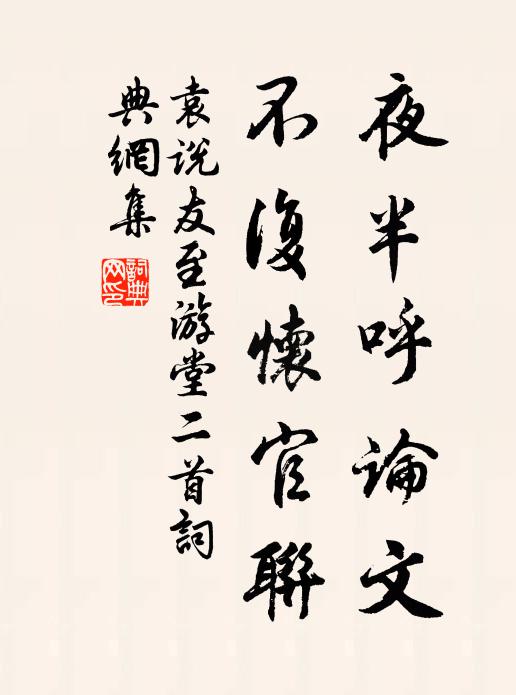 夜半呼論文
不復懷官聯
袁說友至游堂二首詞
典網集
詞典
网印